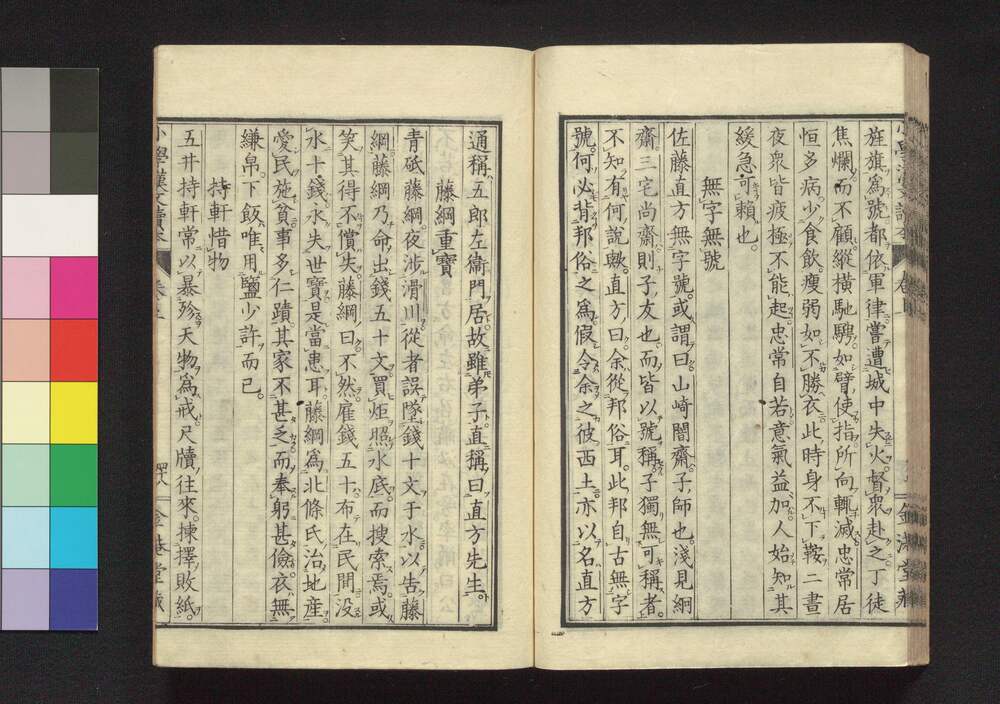 旌旗爲號都依軍律嘗遭城中失火督衆赴之丁徒
焦爛而不顧縱横馳騁如臂使指所向輒滅忠常居
恒多病少食飲瘦弱如不勝衣此時身不下鞍二晝
夜衆皆疲極不能起忠常自若意氣益加人始知其
緩急可賴也
無字無號
佐藤直方無字號或謂曰山崎闇齋子師也淺見絅
齋三宅尚齋則子友也而皆以號稱子獨無可稱者
不知有何說歟直方曰余從邦俗耳此邦自古無字
號何必背邦俗之爲假令余之彼西土亦以名直方
通稱五郎左衞門居故雖弟子直稱曰直方先生
藤綱重寶
青砥藤綱夜涉滑川從者誤墜錢十文于水以告藤
綱藤綱乃命出錢五十文買炬照水底而搜索焉或
笑其得不償失藤綱曰不然雇錢五十布在民間沒
水十錢永失世寶是當患耳藤綱爲北條氏治地產
愛民施貧事多仁蹟其家不甚乏而奉躬甚儉衣無
縑帛下飯唯用鹽少許而已
持軒惜物
五井持軒常以暴殄天物爲戒尺牘往來揀擇敗紙
小學漢文讀本
金港堂藏